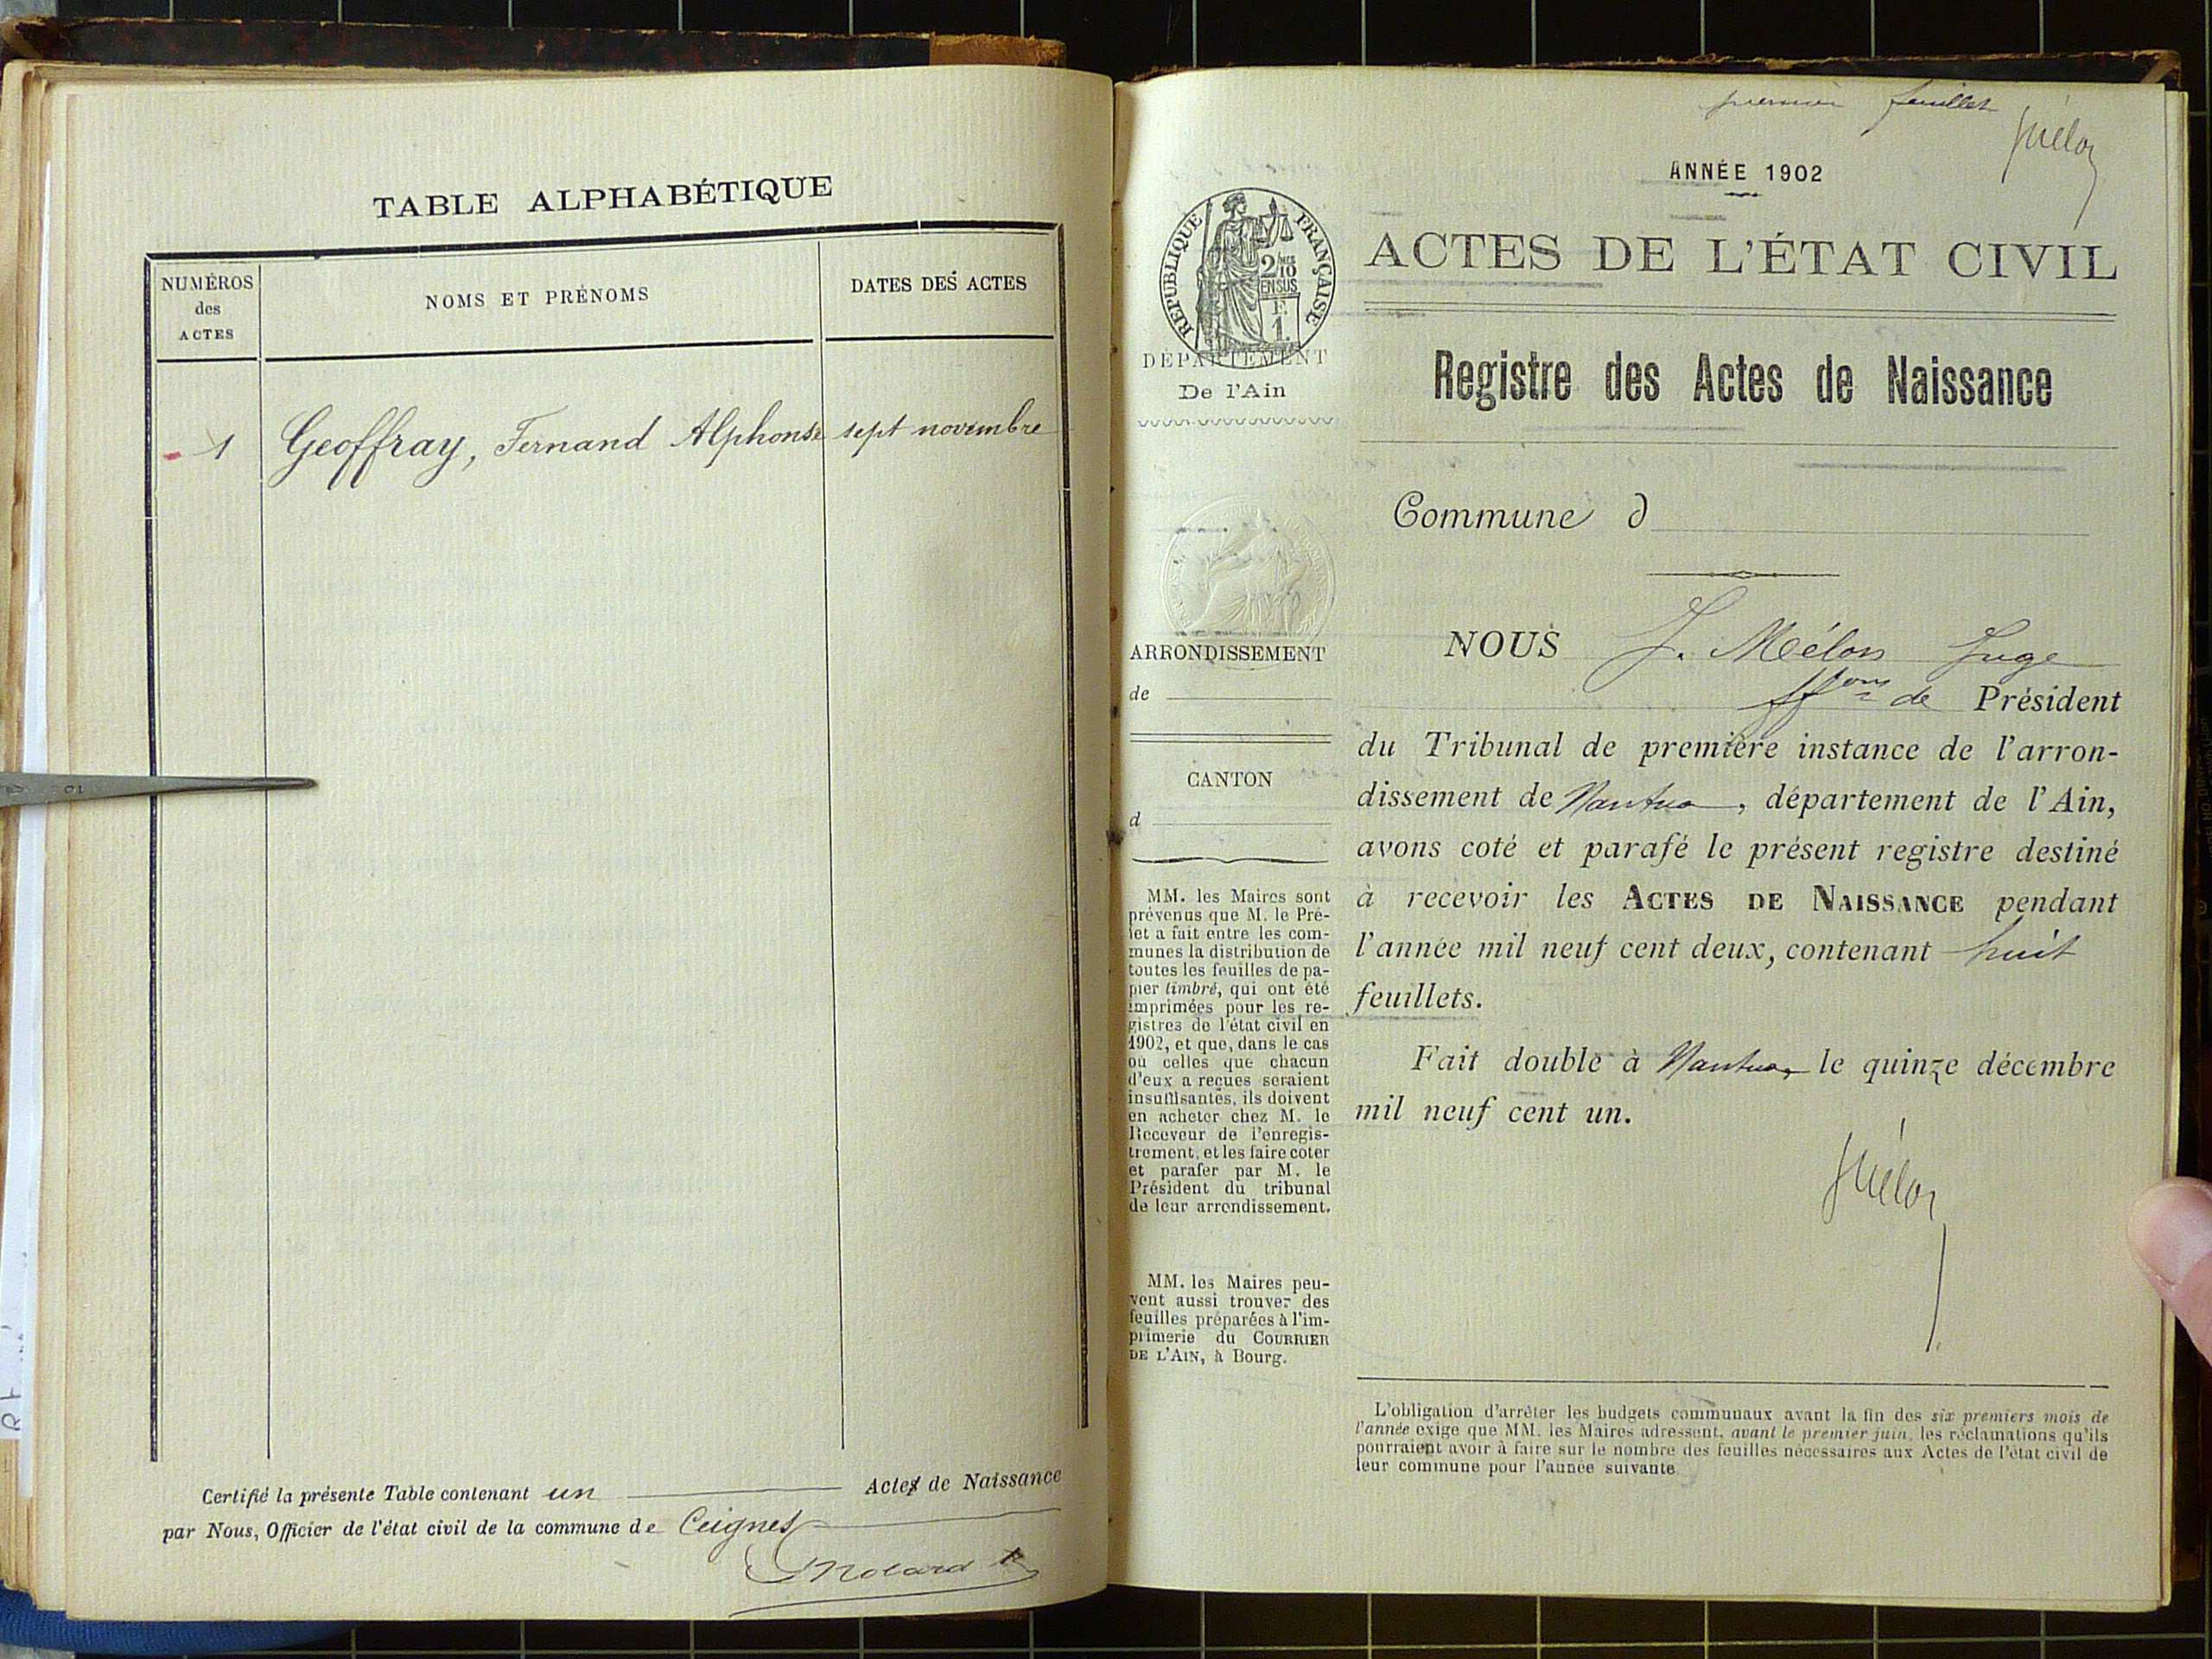 TABLE ALPHABÉTIQUE
NUMÉROS
des
ACTES
NOMS ET PRÉNOMS
DATES DES ACTES
1 Geoffray, Fernand Alphonse sept novembre
Certifié la présente Table contenant un Actes de Naissance
par Nous, Officier de l'état civil de la commune de Ceignes
premier feuillet
ANNÉE 1902
RÉPUBLIQUE FRANÇAISE
2/10
EN SUS
F.
1
ACTES DE L'ÉTAT CIVIL
DÉPARTEMENT
De l'Ain
Registre des Actes de Naissance
Commune d
ARRONDISSEMENT
de
CANTON
d
MM. les Maires sont
prévenus que M. le Pré-
fet a fait entre les com-
munes la distribution de
toutes les feuilles de pa-
pier timbré, qui ont été
imprimées pour les re-
gistres de l'état civil en
1902, et que, dans le cas
où celles que chacun
d'eux a reçues seraient
insuffisantes, ils doivent
en acheter chez M. le
Receveur de l'enregis-
trement, et les faire coter
et parafer par M. le
Président du tribunal
de leur arrondissement.
MM. les Maires peu-
vent aussi trouver des
feuilles préparées à l'im-
primerie du COURRIER
DE L'AIN, à Bourg.
NOUS J. Mélon Juge
ffons de Président
du Tribunal de première instance de l'arron-
dissement de Nantua, département de l'Ain,
avons coté et parafé le présent registre destiné
à recevoir les ACTES DE NAISSANCE pendant
l'année mil neuf cent deux, contenant huit
feuillets.
Fait double à Nantua, le quinze décembre
mil neuf cent un.
L'obligation d'arrêter les budgets communaux avant la fin des six premiers mois de
l'année exige que MM. les Maires adressent, avant le premier juin, les réclamations qu'ils
pourraient avoir à faire sur le nombre des feuilles nécessaires aux Actes de l'état civil de
leur commune pour l'année suivante